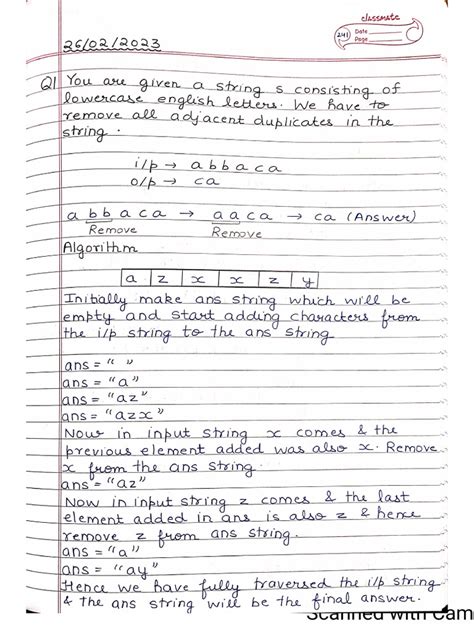 classmate
241 Date
Page
26/02/2023
Q1 You are given a string s consisting of
lowercase english letters. We have to
remove all adjacent duplicates in the
string.
i/p → abbaca
o/p → ca
a bb a c a → a a c a → ca (Answer)
Remove Remove
Algorithm
a z x x z y
Initially make ans string which will be
empty and start adding characters from
the i/p string to the ans string
ans = " "
ans = "a"
ans = "az"
ans = "azx"
Now in input string x comes & the
previous element added was also x. Remove
x from the ans string.
ans = "az"
Now in input string z comes & the last
element added in ans is also z & hence
remove z from ans string.
ans = "a"
ans = "ay"
Hence we have fully traversed the i/p string
& the ans string will be the final answer.
Scanned with Cam